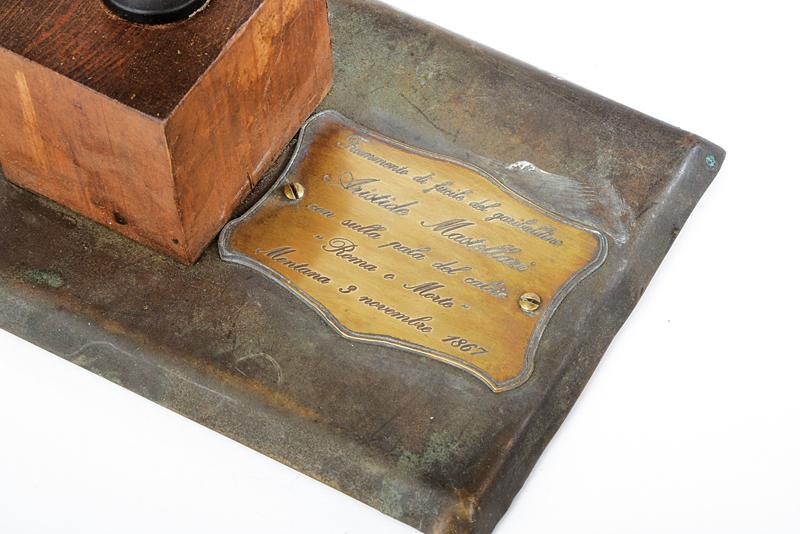 Frammento di fucile del garibaldino
"Aristide Mastellari"
con sulla pala del calcio
"Roma o Morte"
Mentana 3 novembre 1867